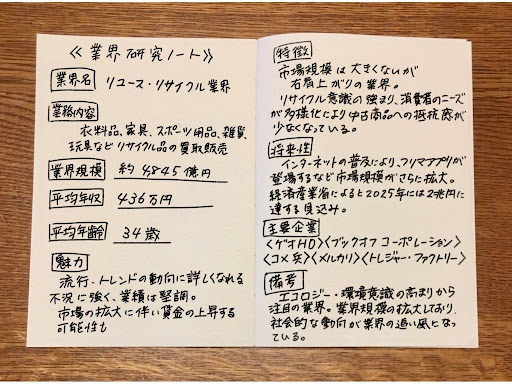 《業界研究ノート》
業界名 リユース・リサイクル業界
業務内容
衣料品、家具、スポーツ用品、雑貨、
玩具などリサイクル品の買取販売
業界規模 約4845億円
平均年収 436万円
平均年齢 34歳
魅力
流行・トレンドの動向に詳しくなれる
不況に強く、業績は堅調。
市場の拡大に伴い賃金の上昇する
可能性も
特徴
市場規模は大きくないが
右肩上がりの業界。
リサイクル意識の強まり、消費者のニーズ
が多様化により中古商品への抵抗感が
少なくなっている。
将来性
インターネットの普及により、フリマアプリが
登場するなど市場規模がさらに拡大。
経済産業省によると2025年には2兆円に
達する見込み。
主要企業
〈ゲオHD〉〈ブックオフコーポレーション〉
〈コメ兵〉〈メルカリ〉〈トレジャー・ファクトリー〉
備考
エコロジー・環境意識の高まりから
注目の業界。業界規模の拡大しており、
社会的な動向が業界の追い風になっ
ている。